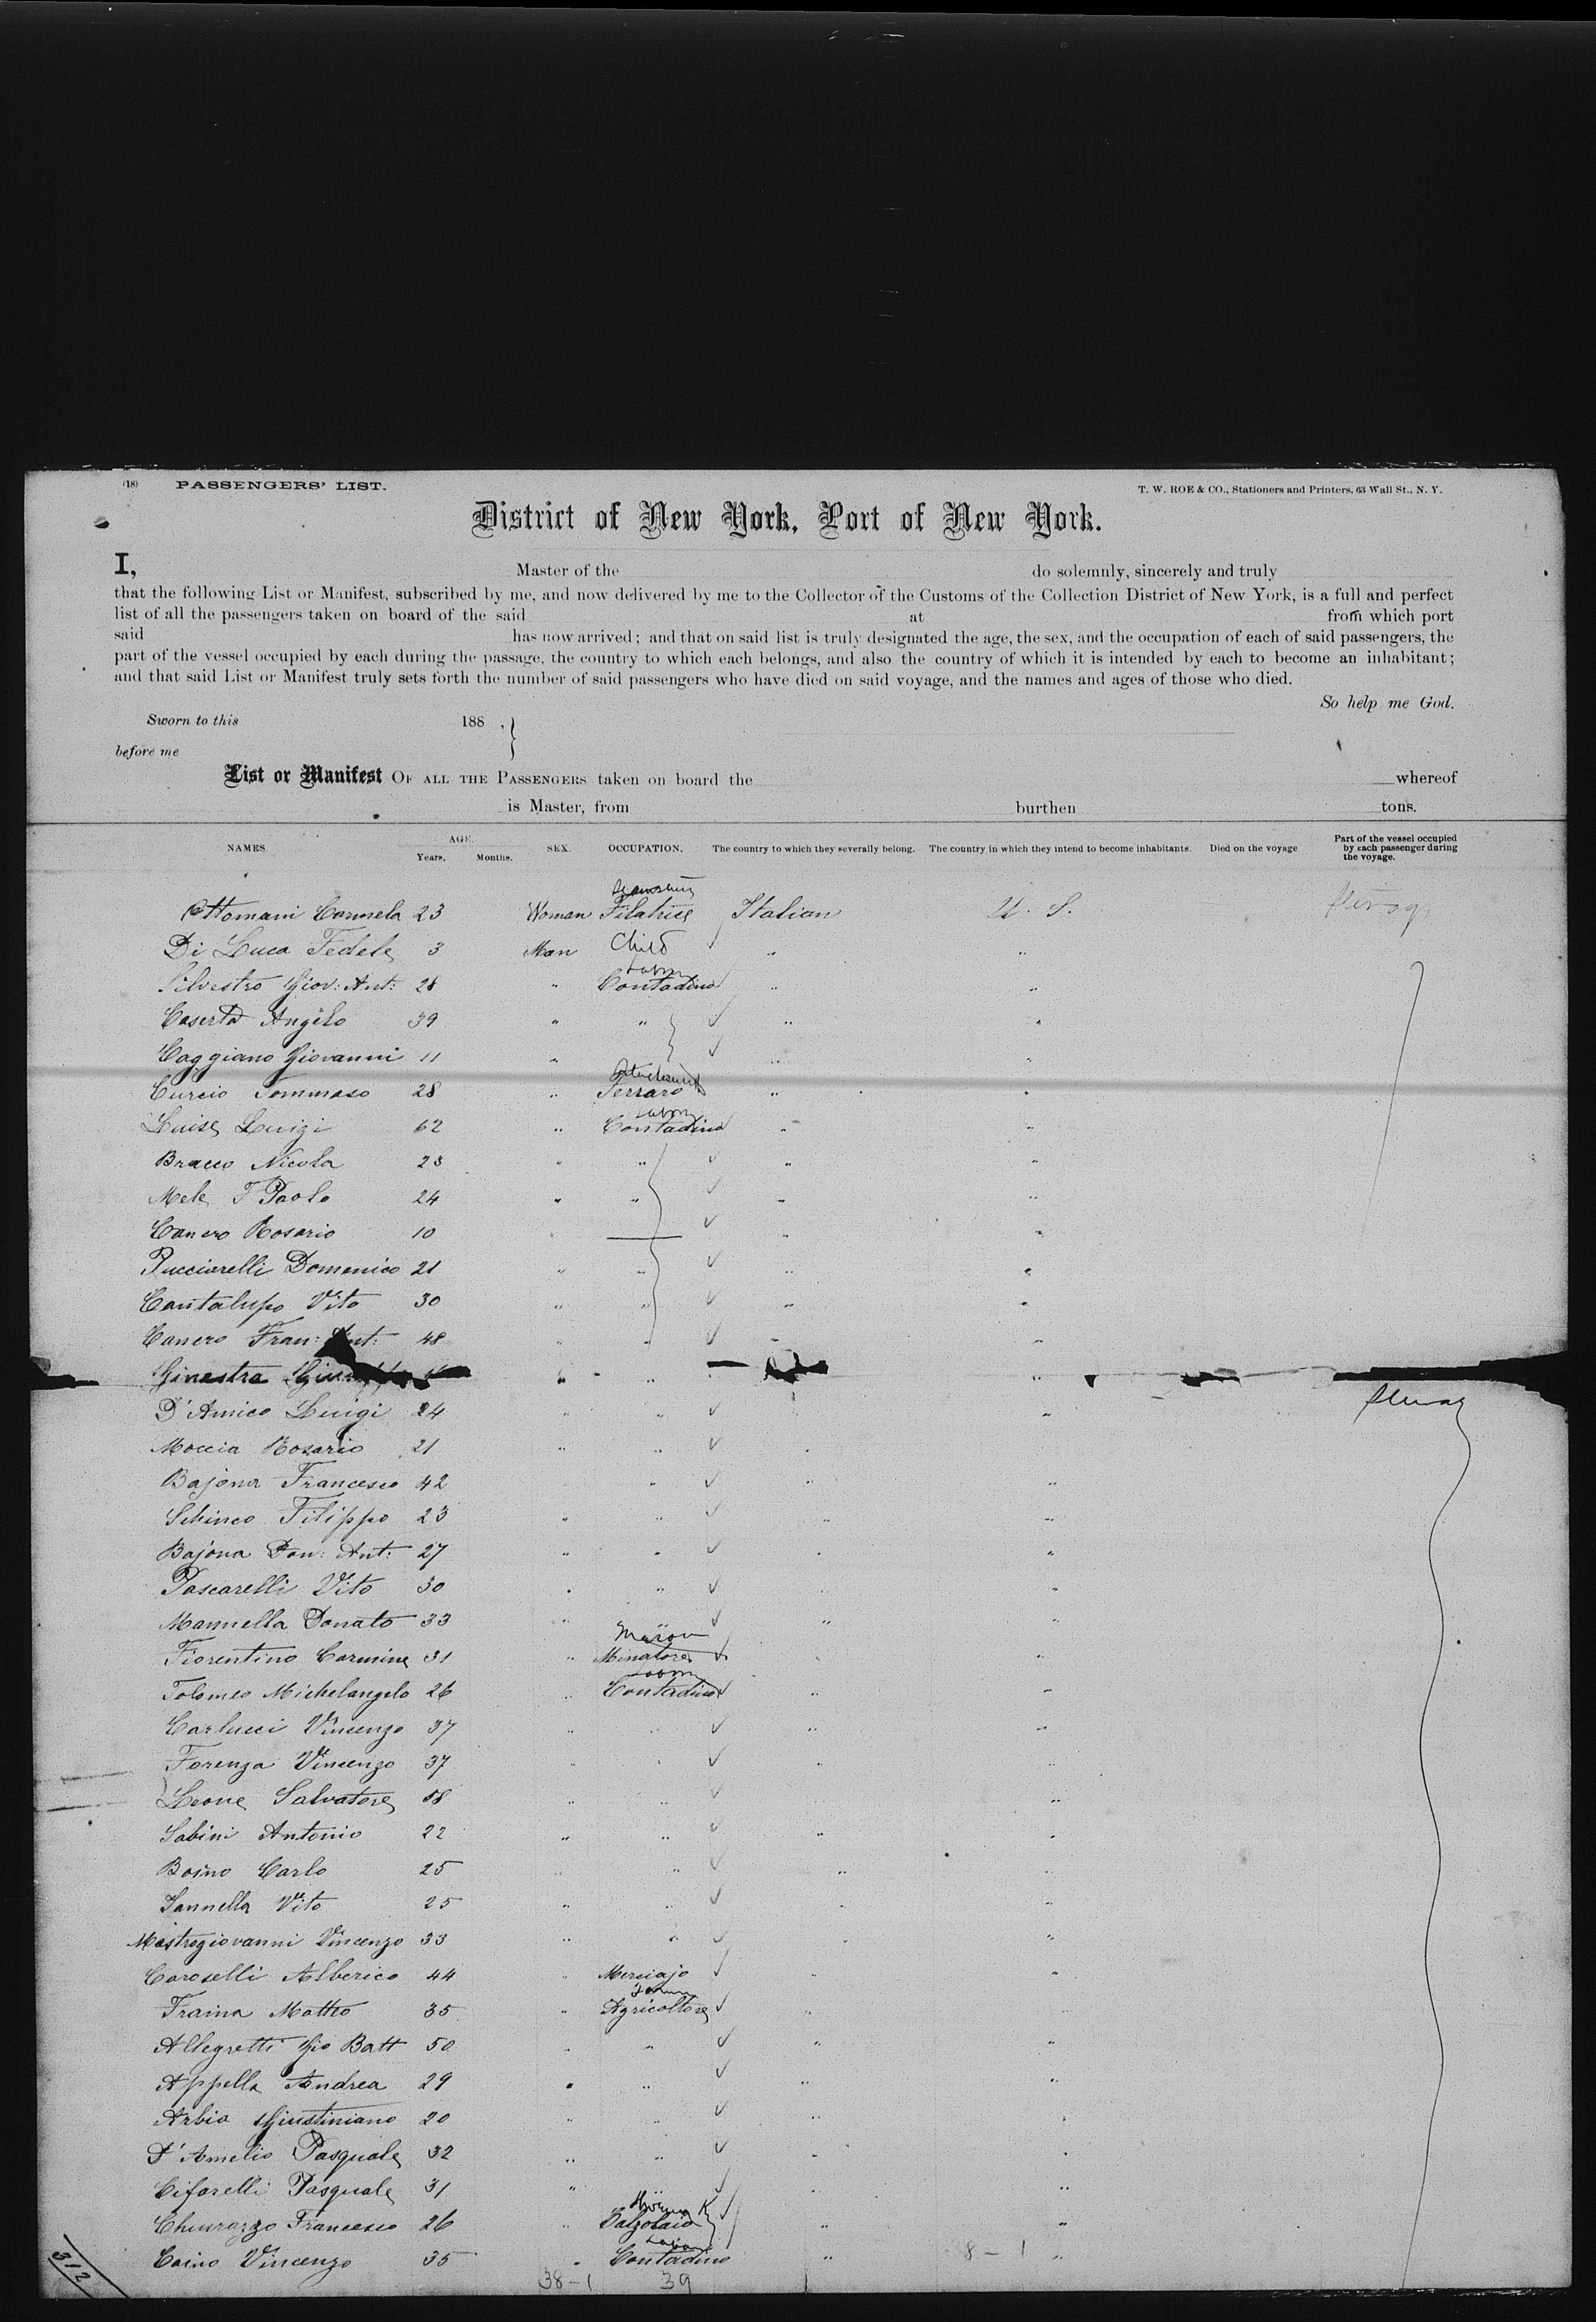 (18) PASSENGERS' LIST. T. W. ROE & CO., Stationers and Printers, 63 Wall St., N. Y.
District of New York, Port of New York.
I, Master of the do solemnly, sincerely and truly
that the following List or Manifest, subscribed by me, and now delivered by me to the Collector of the Customs of the Collection District of New York, is a full and perfect
list of all the passengers taken on board of the said at from which port
said has now arrived; and that on said list is truly designated the age, the sex, and the occupation of each of said passengers, the
part of the vessel occupied by each during the passage, the country to which each belongs, and also the country of which it is intended by each to become an inhabitant;
and that said List or Manifest truly sets forth the number of said passengers who have died on said voyage, and the names and ages of those who died.
So help me God.
Sworn to this 188 ,
before me
List or Manifest OF ALL THE PASSENGERS taken on board the whereof
is Master, from burthen tons.
NAMES. AGE. Years. Months. SEX. OCCUPATION. The country to which they severally belong. The country in which they intend to become inhabitants. Died on the voyage Part of the vessel occupied by each passenger during the voyage.
Ottomani Carmela 23 Woman Filatrice Italian U. S.
Di Luca Fedele 3 Man Child " "
Silvestro Giov: Ant: 28 " Contadino " "
Caserta Angelo 39 " " " "
Caggiano Giovanni 11 " " "
Curcio Tommaso 28 " Ferraro " "
Luise Luigi 62 " Contadino " "
Bracco Nicola 23 " " " "
Mele F Paolo 24 " " " "
Canero Rosario 10 " " "
Pucciarelli Domenico 21 " " " "
Cantalupo Vito 30 " " " "
Canero Fran: Ant: 48 " " " "
Ginestra " " "
D'Amico Luigi 24 " " "
Moccia Rosario 21 " " "
Bajona Francesco 42 " " "
Schinco Filippo 23 " " " "
Bajona Don: Ant: 27 " " " "
Pascarelli Vito 30 " " " "
Mannella Donato 33 " " " "
Mason
Fiorentino Carmine 31 " Minatore " "
Tolomeo Michelangelo 26 " Contadino " "
Carlucci Vincenzo 37 " " " "
Forenza Vincenzo 37 " " " "
Leone Salvatore 58 " " "
Sabini Antonio 22 " " " "
Boino Carlo 25 " " " "
Iannella Vito 25 " " " "
Mastrogiovanni Vincenzo 33 " " "
Caroselli Alberico 44 " Merciajo " "
Traina Matteo 35 " Agricoltore " "
Allegretti Gio Batt 50 " " " "
Appella Andrea 29 " " " "
Arbia Giustiniano 20 " " " "
D'Amelio Pasquale 32 " " " "
Cifarelli Pasquale 31 " " "
Chiurazzo Francesco 26 " Calzolaio " "
Caino Vincenzo 35 " Contadino " 8 - 1 "
312 38-1 39